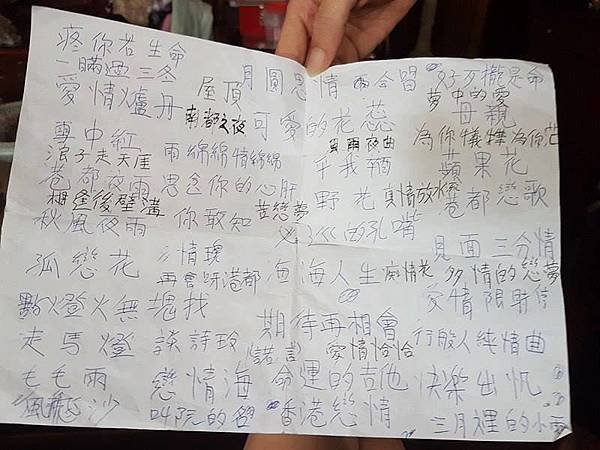 疼你若生命 月圓思情 雨合唱 好歹攏是命
一瞞過三冬 屋頂 夢中的愛
愛情爐丹 南都之夜 可愛的花蕊 母親
雪中紅 夜曲 為你犧牲為你
浪子走天涯 雨綿綿情綿綿 乎我 蘋果花
巷都夜雨 思念你的心肝 野花 真情放水 巷都戀歌
相逢後壁溝 苦戀夢
秋風夜雨 你敢知 的孔嘴 見面三分情
孤戀花 情 海海人生 痴情花 多情的戀夢
再會 港都 愛情限時信
點燈火無塊找 期待再相會
走馬燈 談詩玲 諾言 愛情恰恰 行般人純情曲
毛毛雨 戀情海 命運的吉他 快樂出帆
風飛沙 叫阮的名 香港戀情 三月裡的小雨